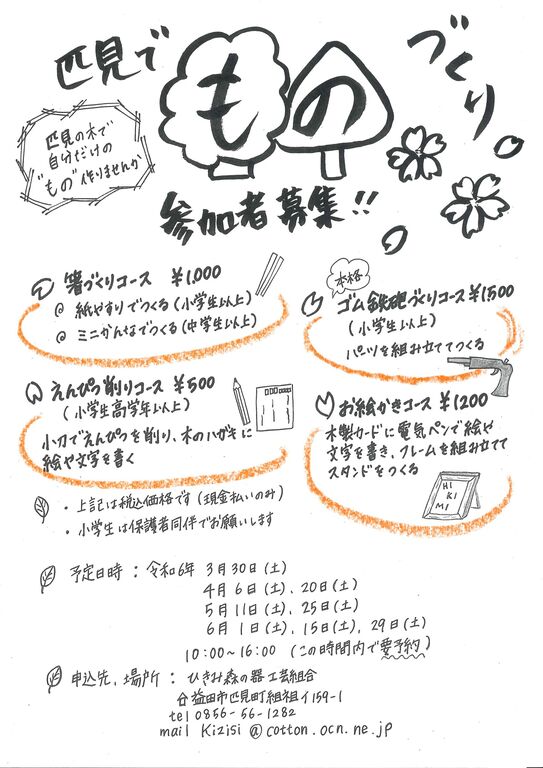 匹見で
もの
づくり
匹見の木で
自分だけの
"もの"作りませんか
参加者募集!!
箸づくりコース ¥1,000
紙やすりでつくる(小学生以上)
ミニかんなでつくる(中学生以上)
本格
ゴム鉄砲づくりコース ¥1,500
(小学生以上)
パーツを組み立ててつくる
えんぴつ削りコース ¥500
(小学生高学年以上)
小刀でえんぴつを削り、木のハガキに
絵や文字を書く
お絵かきコース ¥1200
木製カードに電気ペンで絵や
文字を書き、フレームを組み立てて
スタンドをつくる
HI
KI
MI
・上記は税込価格です(現金払いのみ)
・小学生は保護者同伴でお願いします
予定日時:令和6年 3月30日(土)
4月6日(土)、20日(土)
5月11日(土)、25日(土)
6月1日(土)、15日(土)、29日(土)
10:00~16:00 (この時間内で要予約)
申込先、場所:ひきみ森の器工芸組合
益田市匹見町紙祖イ159-1
tel 0856-56-1282
mail Kizisi@cotton.ocn.ne.jp